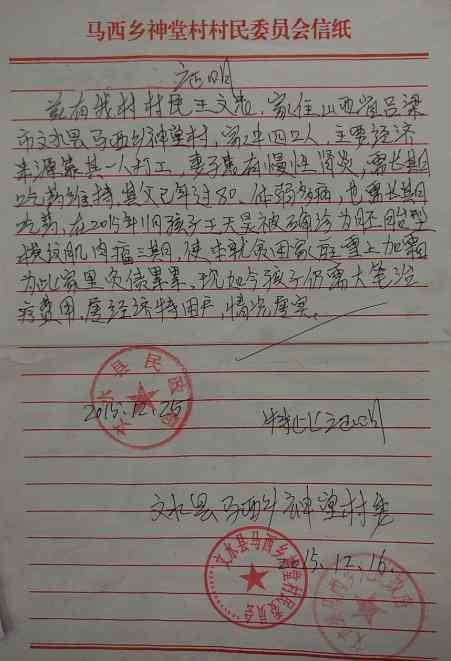 马西乡神堂村村民委员会信纸
证明
兹有我村村民王文 家住山西省吕梁
市文水县马西乡神堂村，家中四口人，主要经济
来源靠其一人打工，妻子患有慢性肾炎，需长期
吃药维持，其父已年过80，体弱多病，也需长期
吃药，在2015年11月孩子王天昊被确诊为胚胎型
横纹肌肉瘤三期，使本就贫困家庭雪上加霜
为此家里负债累累。现如今孩子仍需大笔治
疗费用，属经济特困户，情况属实。
特此证明
2015.12.25
文水县民政局
文水县马西乡神堂村委
2015.12.16
文水县马西乡神堂村民委员会
文水县马西乡人民政府